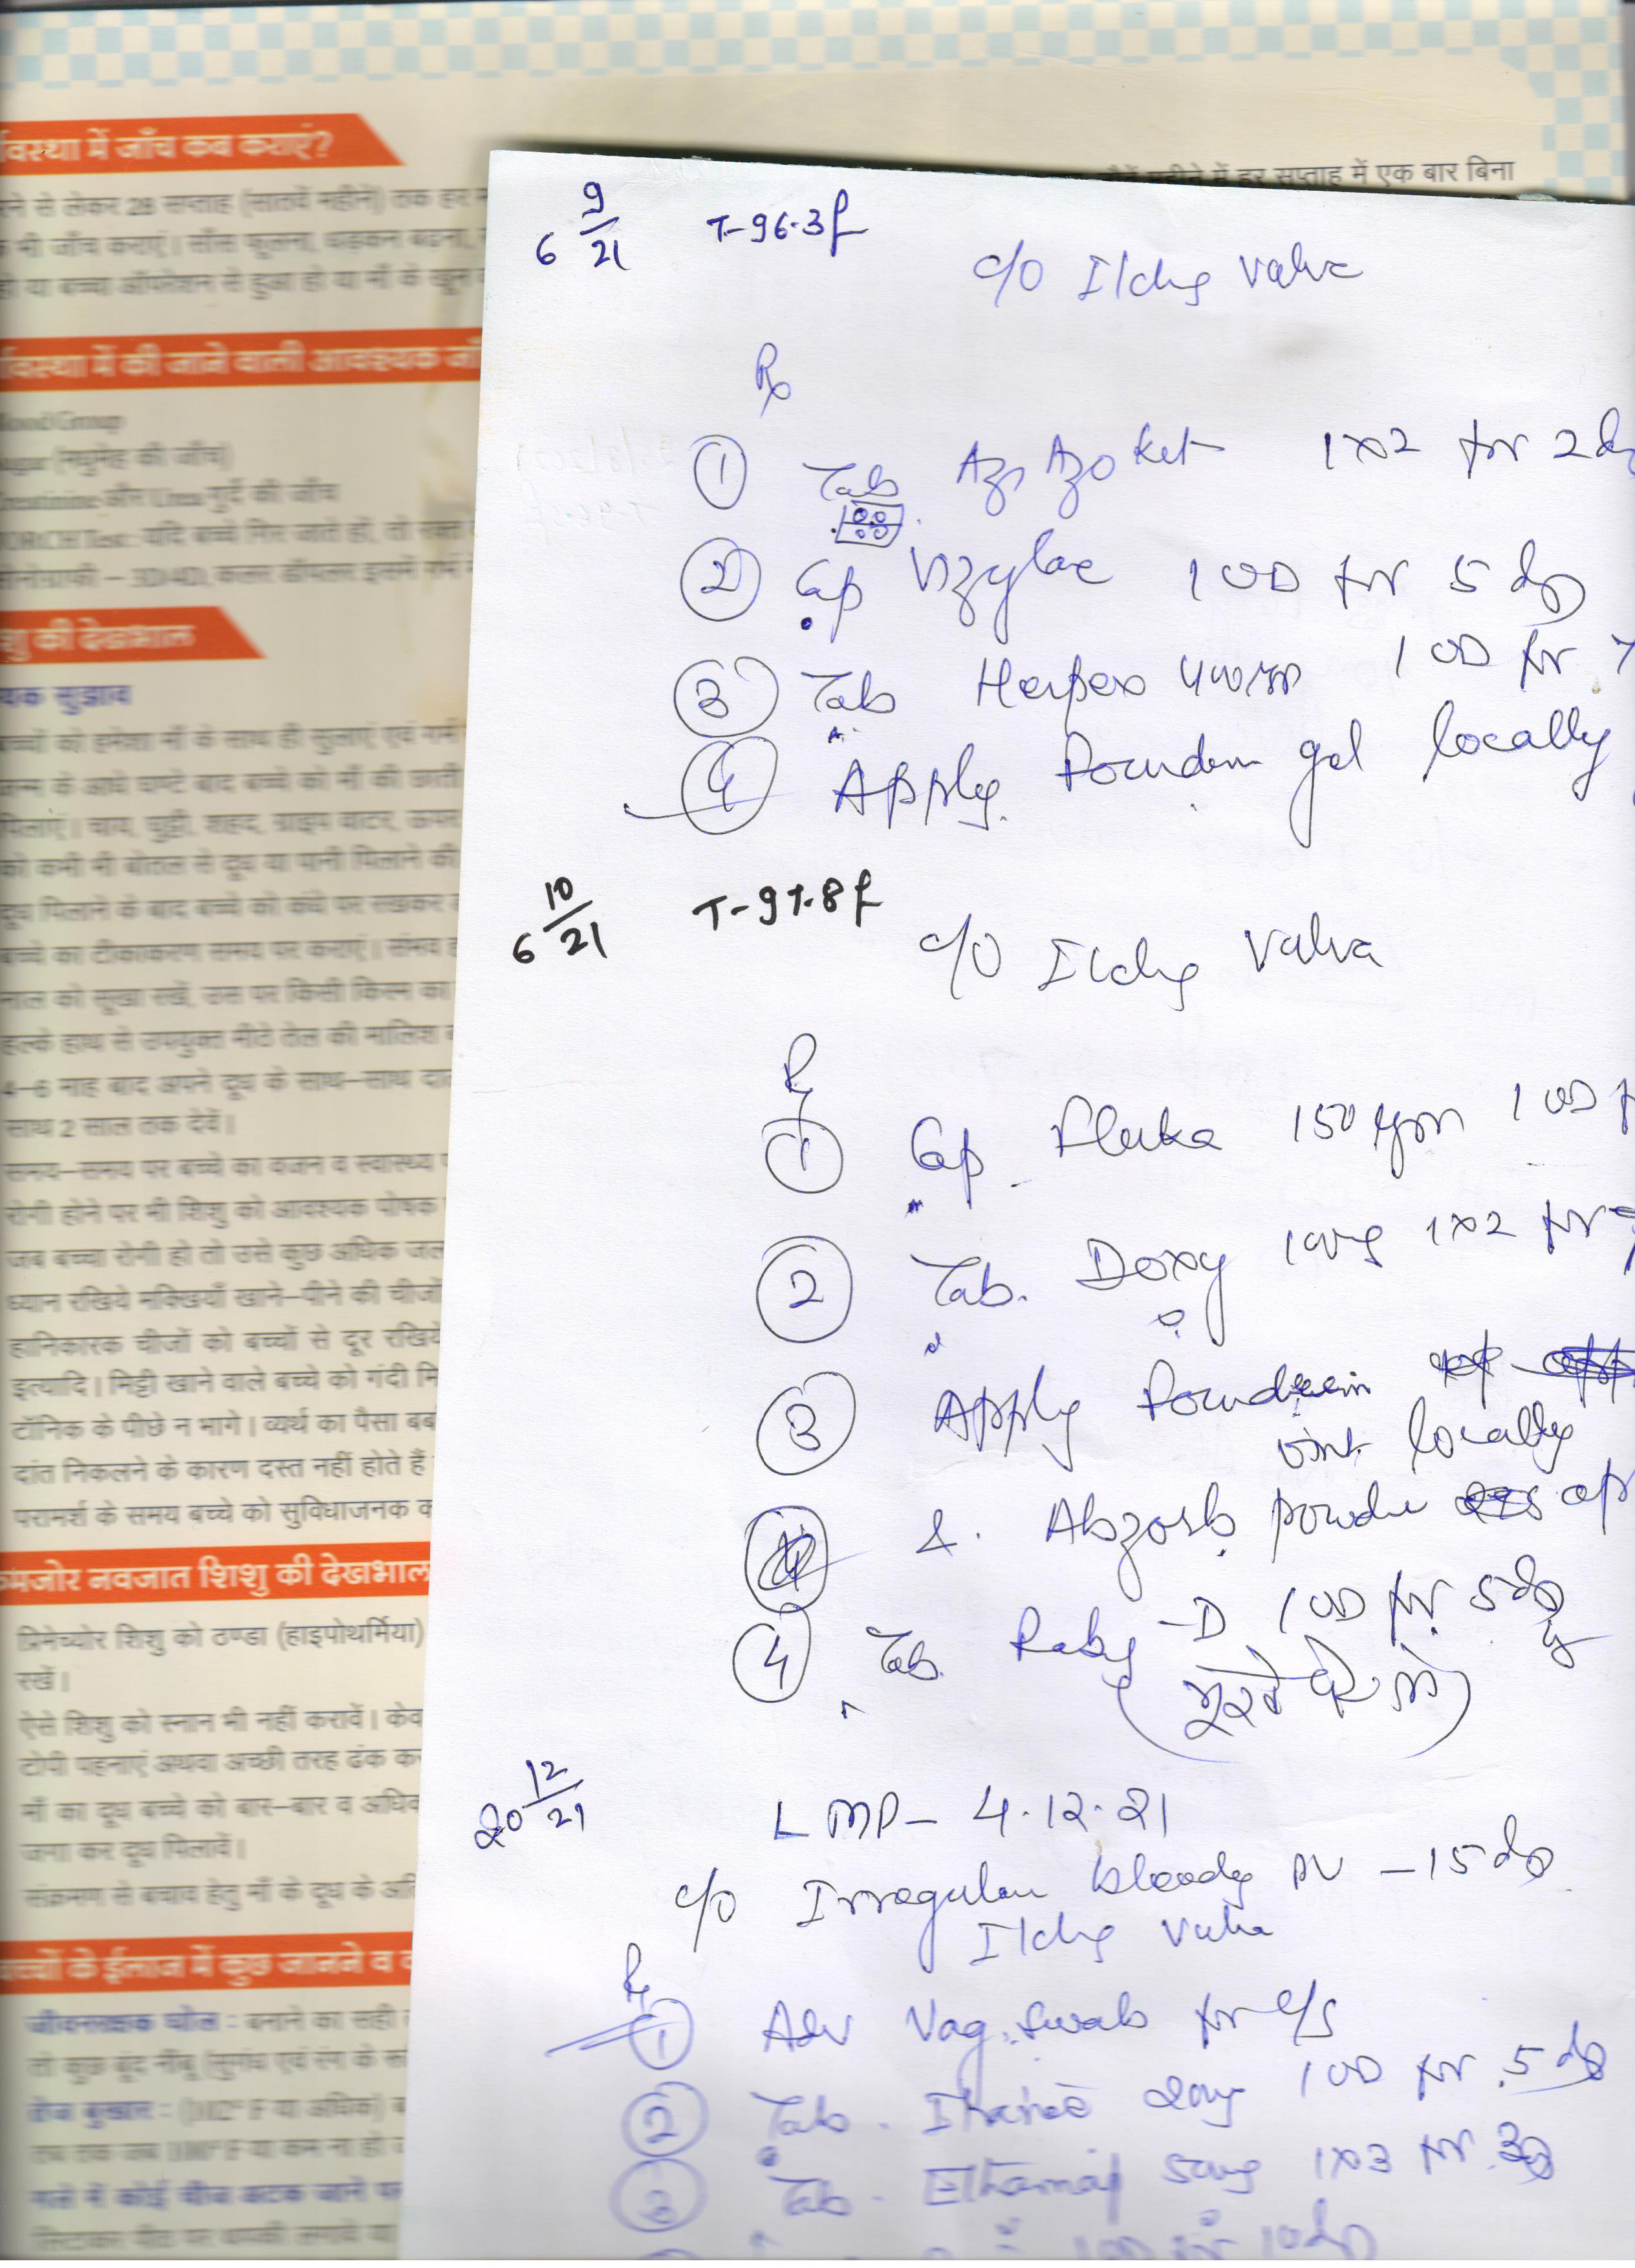 वस्था में जाँच कब कराएं?
में हर सप्ताह में एक बार बिना
ने से लेकर 28 सप्ताह (सातवें महीने) तक हर
भी जाँच कराएं। साँस फूलना, धड़कन बढ़ना,
या बच्चा ऑपरेशन से हुआ हो या माँ के खून
वस्था में की जाने वाली आवश्यक
Blood Group
(मधुमेह की जाँच)
Creatinine और Urea गुर्दे की जाँच
TORCH Test: यदि बच्चे गिर जाते हों, तो रक्त
सोनोग्राफी – 3D/4D, कलर डॉपलर इससे गर्भ
शु की देखभाल
यक सुझाव
बच्चों को हमेशा माँ के साथ ही सुलाएं एवं गर्म
जन्म के आधे घण्टे बाद बच्चे को माँ की छाती
पिलाएं। चाय, घुट्टी, शहद, ग्राइप वाटर, ऊपर
को कभी भी बोतल से दूध या पानी पिलाने की
दूध पिलाने के बाद बच्चे को कंधे पर रखकर
बच्चे का टीकाकरण समय पर कराएं। संभव
नाल को सूखा रखें, उस पर किसी किस्म का
हल्के हाथ से उपयुक्त मीठे तेल की मालिश
4–6 माह बाद अपने दूध के साथ–साथ
साथ 2 साल तक देवें।
समय–समय पर बच्चे का वजन व स्वास्थ्य
रोगी होने पर भी शिशु को आवश्यक पोषक
जब बच्चा रोगी हो तो उसे कुछ अधिक जल
ध्यान रखिये मक्खियाँ खाने–पीने की चीजों
हानिकारक चीजों को बच्चों से दूर रखिये
इत्यादि। मिट्टी खाने वाले बच्चे को गंदी मि
टॉनिक के पीछे न भागे। व्यर्थ का पैसा बर्ब
दांत निकलने के कारण दस्त नहीं होते हैं
परामर्श के समय बच्चे को सुविधाजनक क
मजोर नवजात शिशु की देखभाल
प्रिमेच्योर शिशु को ठण्डा (हाइपोथर्मिया)
रखें।
ऐसे शिशु को स्नान भी नहीं करावें। केव
टोपी पहनाएं अथवा अच्छी तरह ढंक कर
माँ का दूध बच्चे को बार–बार व अधिक
जगा कर दूध पिलावें।
संक्रमण से बचाव हेतु माँ के दूध के अति
बच्चों के ईलाज में कुछ जानने व
जीवनरक्षक घोल : बनाने का सही
तो कुछ बूंद नींबू (सुगंध एवं रंग के
तेज बुखार : (102° F या अधिक)
तब तक जब 100° F या कम ना हो
गले में कोई चीज अटक जाने पर
लिटाकर पीठ पर थपकी लगाये या
6 9/21 T-96.3f
c/o Itching Valva
Rx
① Tab AzoKet 1x2 for 2 d
② Cap Vizylac 1 OD for 5 days
③ Tab Herpex 400mg 1 OD for 7
④ Apply gel locally
6 10/21 T-97.8f
c/o Itching Valva
Rx
① Cap Fluka 150 gm 1 OD f
② Tab. Doxy 100mg 1x2 for
③ Apply
oint locally
& Abzorb powder
④ Tab. Raby-D 1 OD for 5 days
20 12/21 LMP- 4.12.21
c/o Irregular bleeding PV – 15 days
Itching Valva
Rx
① Adv Vag. Swab for c/s
② Tab. 1 OD for 5 days
③ Tab. Ethamaf 1x3 for 3 d
1 OD for 10 days